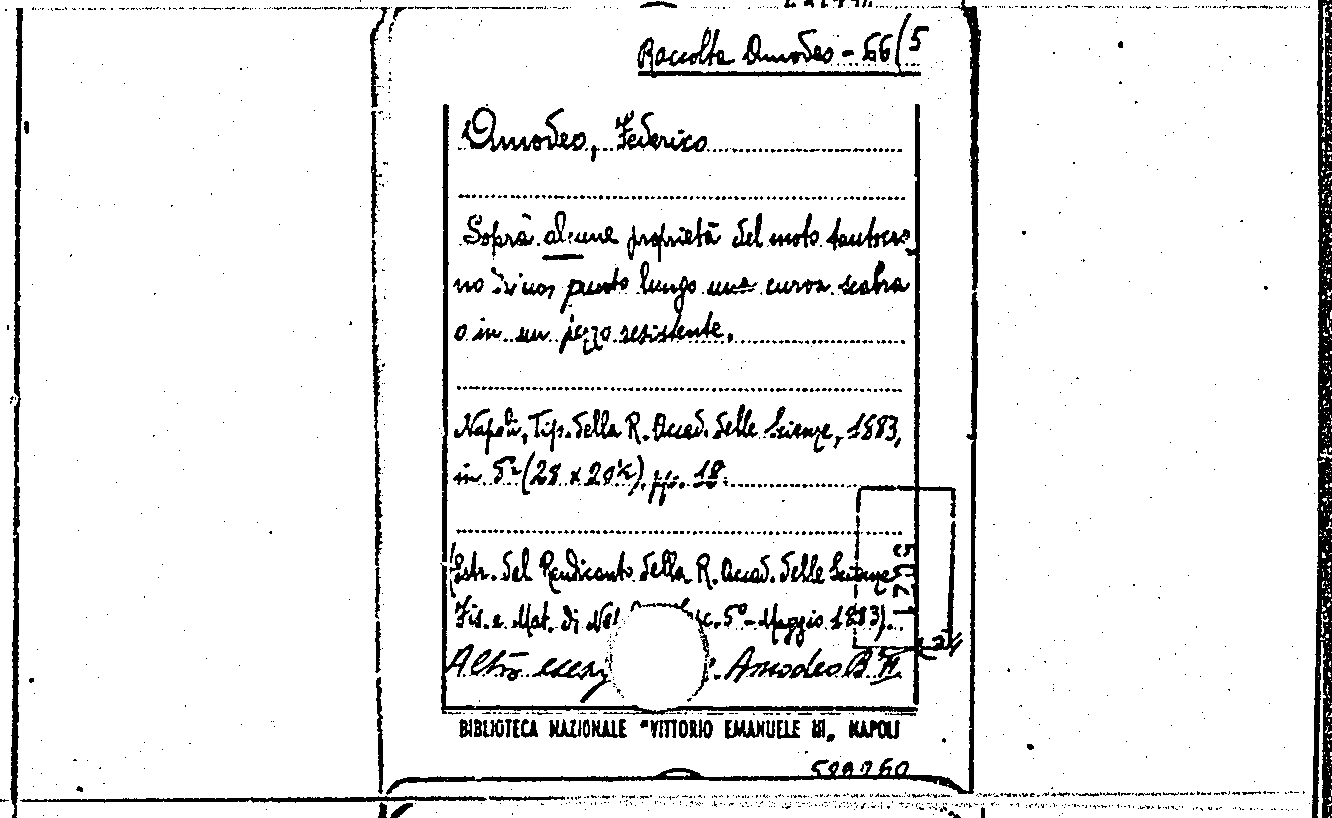 Raccolta Amodeo - 66(5
Amodeo, Federico
Sopra alcune proprietà del moto tautocro
no di un punto lungo una curva scabra
o in un mezzo resistente.
Napoli, Tip. della R. Accad. delle Scienze, 1883,
in 5° (28 x 20½). pp. 18.
(Estr. dal Rendiconto della R. Accad. delle Scienze
Fis. e Mat. di c. 5° - Maggio 1883).
Altro Amodeo B
BIBLIOTECA NAZIONALE "VITTORIO EMANUELE III" NAPOLI